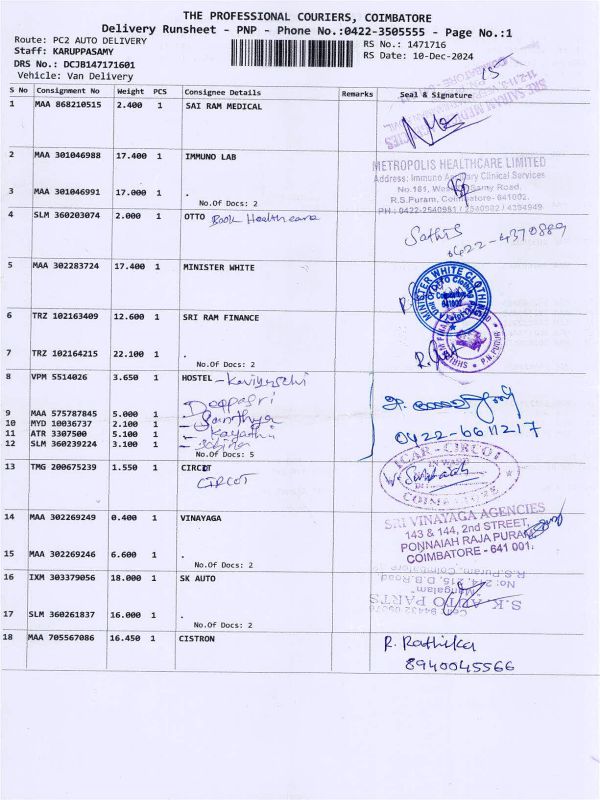 THE PROFESSIONAL COURIERS, COIMBATORE
Delivery Runsheet - PNP - Phone No.:0422-3505555 - Page No.:1
Route: PC2 AUTO DELIVERY
RS No.: 1471716
Staff: KARUPPASAMY
RS Date: 10-Dec-2024
DRS No.: DCJB147171601
Vehicle: Van Delivery
15
S No Consignment No Weight PCS Consignee Details Remarks Seal & Signature
1 MAA 868210515 2.400 1 SAI RAM MEDICAL
2 MAA 301046988 17.400 1 IMMUNO LAB
METROPOLIS HEALTHCARE LIMITED
Address: Immuno Ancillary Clinical Services
No.181, Samy Road,
R.S.Puram, Coimbatore- 641002.
PH : 0422-2540981 / 2540982 / 4394949
3 MAA 301046991 17.000 1 .
No.Of Docs: 2
4 SLM 360203074 2.000 1 OTTO Book Healthcare
Sathis
0422-4370889
5 MAA 302283724 17.400 1 MINISTER WHITE
MINISTER WHITE CLOTHING
Coimbatore
641002
6 TRZ 102163409 12.600 1 SRI RAM FINANCE
7 TRZ 102164215 22.100 1 .
No.Of Docs: 2
8 VPM 5514026 3.650 1 HOSTEL - 
Deepasri
9 MAA 575787845 5.000 1
10 MYD 10036737 2.100 1 - Santhya
11 ATR 3307500 5.100 1 - Gayathri
12 SLM 360239224 3.100 1
No.Of Docs: 5
0422-6611217
13 TMG 200675239 1.550 1 CIRCOT
CIRCOT
ICAR - CIRCOT
COIMBATORE
14 MAA 302269249 0.400 1 VINAYAGA
SRI VINAYAGA AGENCIES
143 & 144, 2nd STREET,
PONNAIAH RAJA PURAM
COIMBATORE - 641 001.
15 MAA 302269246 6.600 1 .
No.Of Docs: 2
16 IXM 303379056 18.000 1 SK AUTO
S.K AUTO PARTS
"Mangalam"
No: 214, 215, D.B.Road,
R.S.Puram, Coimbatore
17 SLM 360261837 16.000 1 .
No.Of Docs: 2
18 MAA 705567086 16.450 1 CISTRON
R. Rathika
8940045566